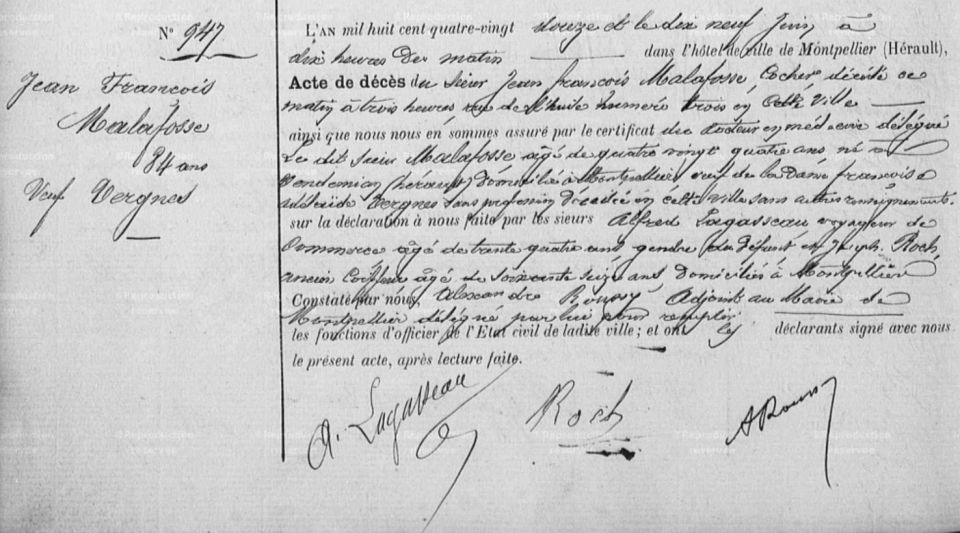 N° 947
Jean François
Malafosse
84 ans
Veuf Vergnes
L'AN mil huit cent quatre-vingt douze et le dix neuf Juin à
dix heures du matin dans l'hôtel de ville de Montpellier (Hérault),
Acte de décès du sieur Jean François Malafosse, Cocher décédé ce
matin à trois heures, rue de numéro trois en cette ville
ainsi que nous nous en sommes assuré par le certificat du docteur en médecine délégué
Le dit sieur Malafosse agé de quatre vingt quatre ans né à
Vendemian (hérault) domicilié à Montpellier veuf de la Dame françoise
adelaide Vergnes sans profession décédée en cette ville sans autres renseignements.
sur la déclaration à nous faite par les sieurs Alfred Lagasseau voyageur de
Commerce agé de trente quatre ans gendre du défunt et Joseph Roch,
ancien Coiffeur agé de soixante seize ans domiciliés à Montpellier
Constaté par nous, Alexandre Roussy Adjoint au Maire de
Montpellier délégué par lui pour remplir
les fonctions d'officier de l'Etat civil de ladite ville ; et ont les déclarants signé avec nous
le présent acte, après lecture faite.
A. Lagasseau
Roch
©Reproduction réservée